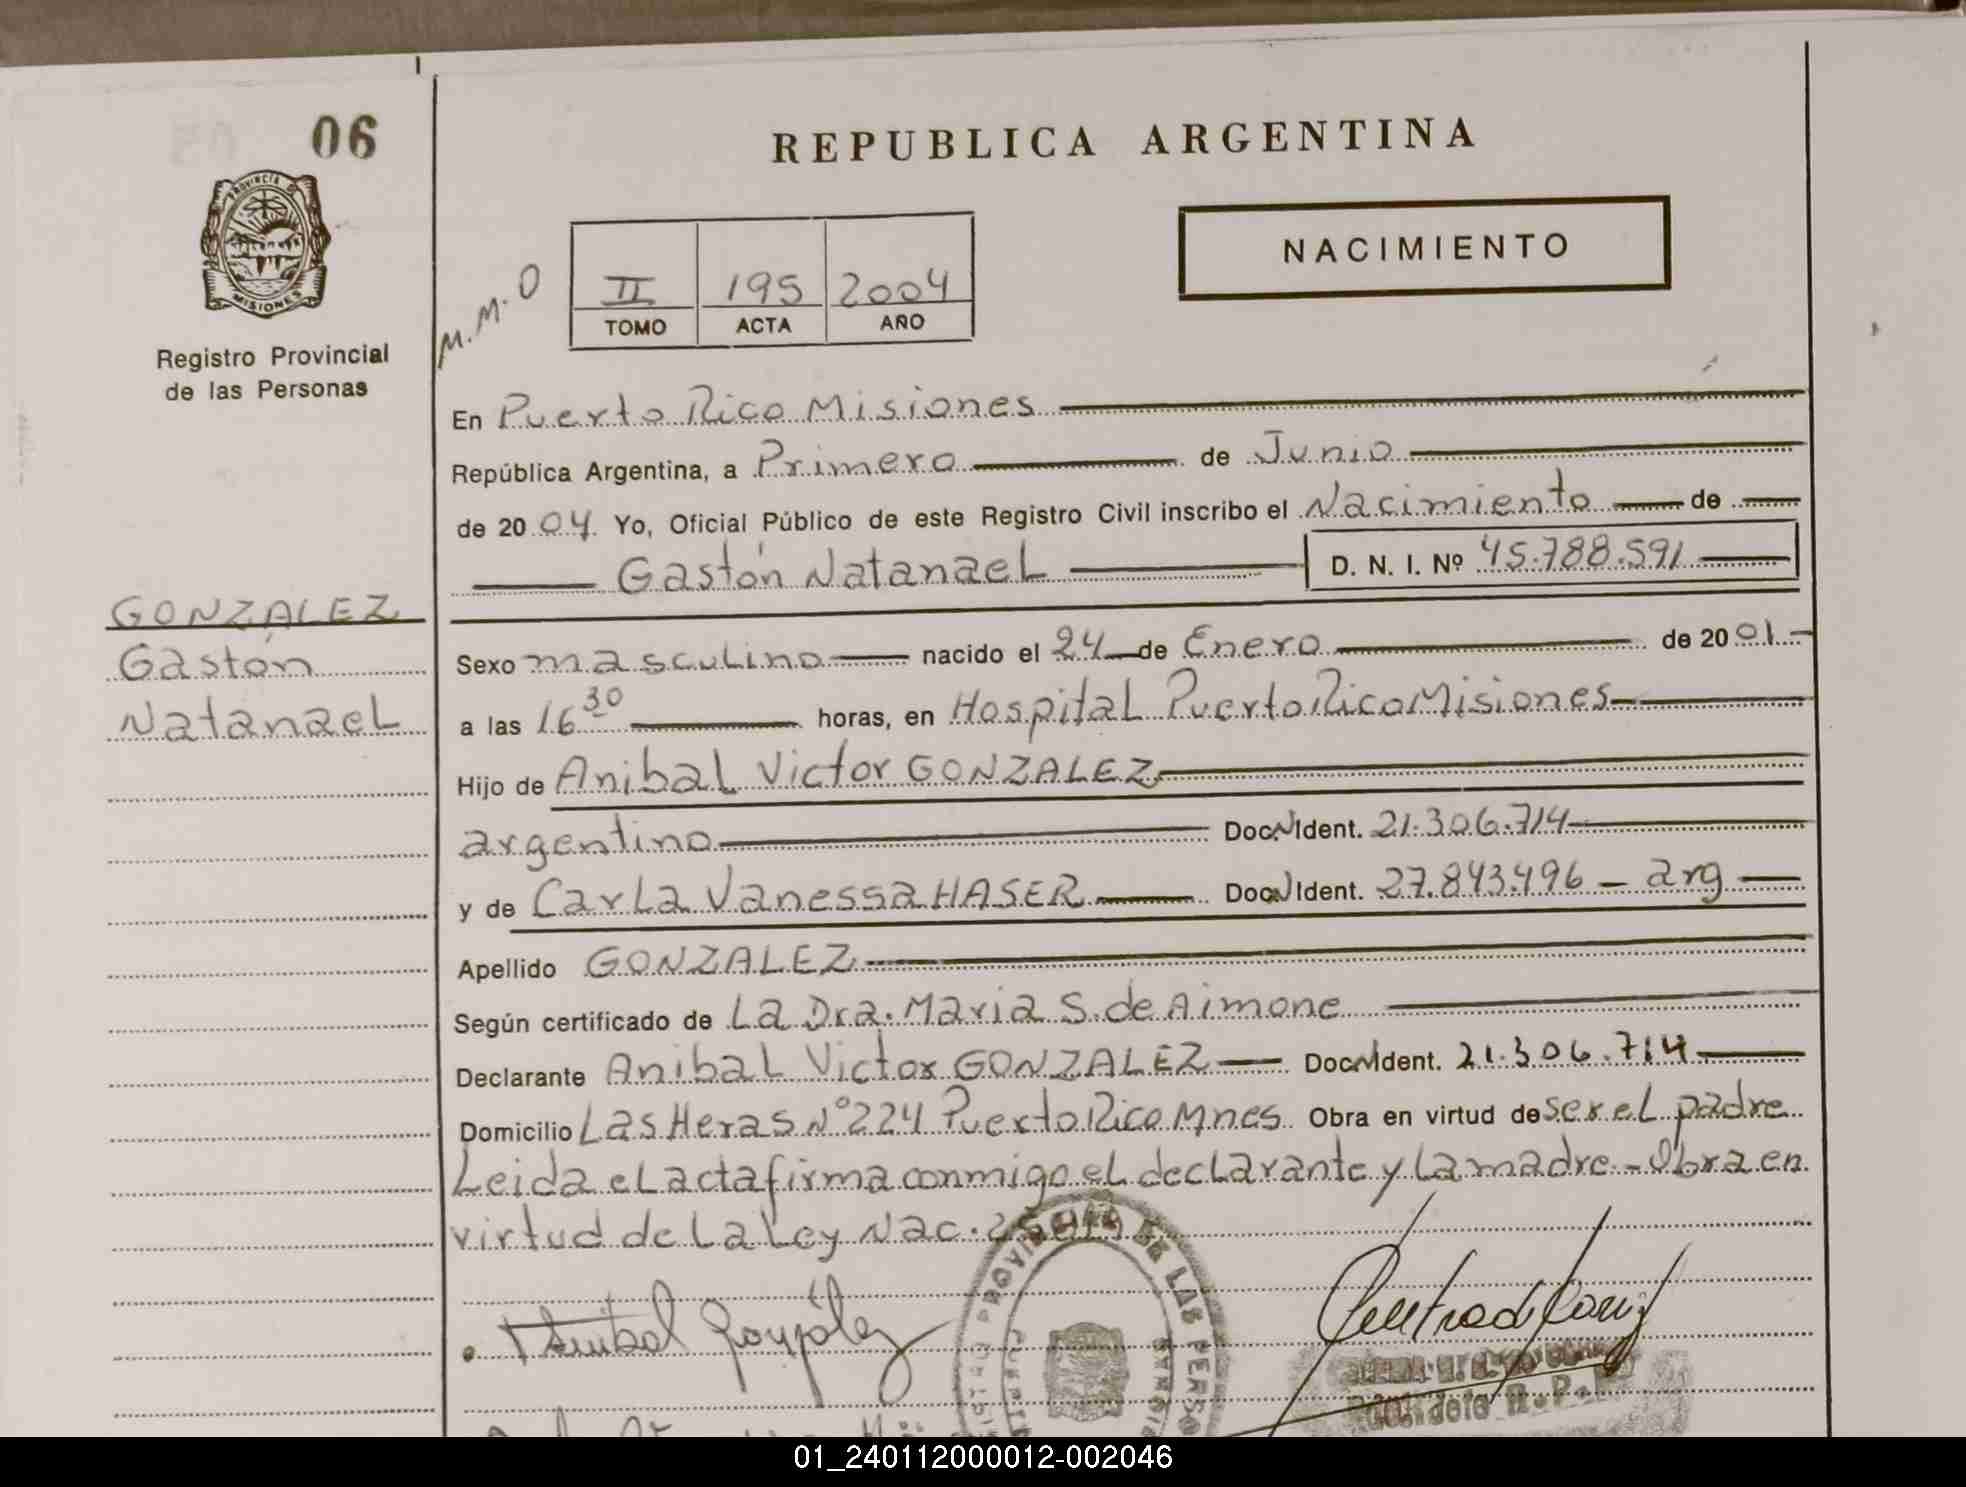 06
REPUBLICA ARGENTINA
PROVINCIA D
MISIONES
Registro Provincial
de las Personas
M.M.O
II 195 2004
TOMO ACTA AÑO
NACIMIENTO
En Puerto Rico Misiones
República Argentina, a Primero de Junio
de 2004. Yo, Oficial Público de este Registro Civil inscribo el Nacimiento de
Gastón Natanael D. N. I. Nº 45.788.591
GONZALEZ
Gastón
Natanael
Sexo masculino nacido el 24 de Enero de 2001
a las 16 30 horas, en Hospital Puerto Rico Misiones
Hijo de Anibal Victor GONZALEZ
argentino Doc.N Ident. 21.306.714
y de Carla Vanessa HASER Doc.N Ident. 27.843.496 - arg
Apellido GONZALEZ
Según certificado de La Dra. Maria S. de Aimone
Declarante Anibal Victor GONZALEZ Doc.N Ident. 21.306.714
Domicilio Las Heras N° 224 Puerto Rico Mnes. Obra en virtud de ser el padre
Leida el acta firma conmigo el declarante y la madre - Obra en
virtud de la Ley Nac.
Anibal González
01_240112000012-002046